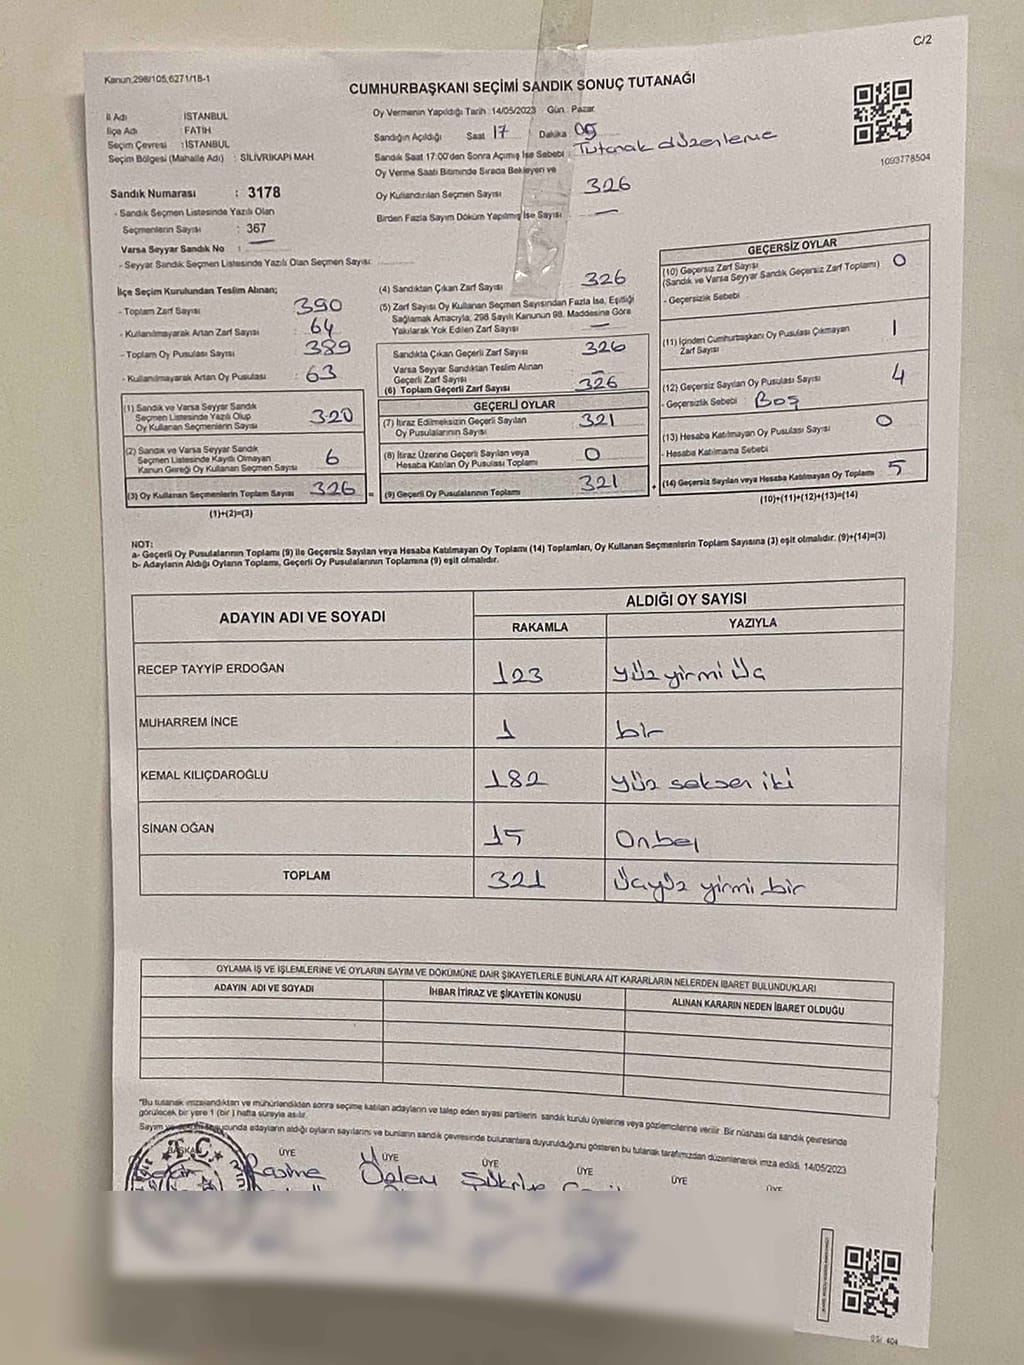 C/2
Kanun;298/105,6271/18-1
CUMHURBAŞKANI SEÇİMİ SANDIK SONUÇ TUTANAĞI
İl Adı : İSTANBUL
İlçe Adı : FATİH
Seçim Çevresi : İSTANBUL
Seçim Bölgesi (Mahalle Adı) : SİLİVRİKAPI MAH
Sandık Numarası : 3178
- Sandık Seçmen Listesinde Yazılı Olan
Seçmenlerin Sayısı : 367
Varsa Seyyar Sandık No : —
- Seyyar Sandık Seçmen Listesinde Yazılı Olan Seçmen Sayısı:
Oy Vermenin Yapıldığı Tarih : 14/05/2023 Gün : Pazar
Sandığın Açıldığı Saat 17 Dakika 05
Sandık Saat 17:00'den Sonra Açımış İse Sebebi : Tutanak düzenleme
Oy Verme Saati Bitiminde Sırada Bekleyen ve
Oy Kullandırılan Seçmen Sayısı 326
Birden Fazla Sayım Döküm Yapılmış İse Sayısı —
1093778504
İlçe Seçim Kurulundan Teslim Alınan;
- Toplam Zarf Sayısı : 390
- Kullanılmayarak Artan Zarf Sayısı : 64
- Toplam Oy Pusulası Sayısı : 389
- Kullanılmayarak Artan Oy Pusulası : 63
(1) Sandık ve Varsa Seyyar Sandık
Seçmen Listesinde Yazılı Olup
Oy Kullanan Seçmenlerin Sayısı 320
(2) Sandık ve Varsa Seyyar Sandık
Seçmen Listesinde Kayıtlı Olmayan
Kanun Gereği Oy Kullanan Seçmen Sayısı 6
(3) Oy Kullanan Seçmenlerin Toplam Sayısı 326 =
(1)+(2)=(3)
(4) Sandıktan Çıkan Zarf Sayısı 326
(5) Zarf Sayısı Oy Kullanan Seçmen Sayısından Fazla İse, Eşitliği
Sağlamak Amacıyla; 298 Sayılı Kanunun 98. Maddesine Göre
Yakılarak Yok Edilen Zarf Sayısı —
Sandıkta Çıkan Geçerli Zarf Sayısı 326
Varsa Seyyar Sandıktan Teslim Alınan
Geçerli Zarf Sayısı —
(6) Toplam Geçerli Zarf Sayısı 326
GEÇERLİ OYLAR
(7) İtiraz Edilmeksizin Geçerli Sayılan
Oy Pusulalarının Sayısı 321
(8) İtiraz Üzerine Geçerli Sayılan veya
Hesaba Katılan Oy Pusulası Toplamı 0
(9) Geçerli Oy Pusulalarının Toplamı 321 +
GEÇERSİZ OYLAR
(10) Geçersiz Zarf Sayısı 0
(Sandık ve Varsa Seyyar Sandık Geçersiz Zarf Toplamı)
- Geçersizlik Sebebi
(11) İçinden Cumhurbaşkanı Oy Pusulası Çıkmayan
Zarf Sayısı 1
(12) Geçersiz Sayılan Oy Pusulası Sayısı 4
- Geçersizlik Sebebi : Boş
(13) Hesaba Katılmayan Oy Pusulası Sayısı 0
- Hesaba Katılmama Sebebi
(14) Geçersiz Sayılan veya Hesaba Katılmayan Oy Toplamı 5
(10)+(11)+(12)+(13)=(14)
NOT:
a- Geçerli Oy Pusulalarının Toplamı (9) ile Geçersiz Sayılan veya Hesaba Katılmayan Oy Toplamı (14) Toplamları, Oy Kullanan Seçmenlerin Toplam Sayısına (3) eşit olmalıdır. (9)+(14)=(3)
b- Adayların Aldığı Oyların Toplamı, Geçerli Oy Pusulalarının Toplamına (9) eşit olmalıdır.
ADAYIN ADI VE SOYADI
ALDIĞI OY SAYISI
RAKAMLA YAZIYLA
RECEP TAYYİP ERDOĞAN 123 yüz yirmi üç
MUHARREM İNCE 1 bir
KEMAL KILIÇDAROĞLU 182 yüz seksen iki
SİNAN OĞAN 15 Onbeş
TOPLAM 321 üçyüz yirmi bir
OYLAMA İŞ VE İŞLEMLERİNE VE OYLARIN SAYIM VE DÖKÜMÜNE DAİR ŞİKAYETLERLE BUNLARA AİT KARARLARIN NELERDEN İBARET BULUNDUKLARI
ADAYIN ADI VE SOYADI İHBAR İTİRAZ VE ŞİKAYETİN KONUSU ALINAN KARARIN NEDEN İBARET OLDUĞU
"Bu tutanak imzalandıktan ve mühürlendikten sonra seçime katılan adayların ve talep eden siyasi partilerin sandık kurulu üyelerine veya gözlemcilerine verilir. Bir nüshası da sandık çevresinde
görülecek bir yere 1 (bir) hafta süreyle asılır.
Sayım ve döküm sonucunda adayların aldığı oyların sayılarını ve bunların sandık çevresinde bulunanlara duyurulduğunu gösteren bu tutanak tarafımızdan düzenlenerek imza edildi. 14/05/2023
BAŞKAN ÜYE ÜYE ÜYE ÜYE ÜYE ÜYE
T.C.
Rasime Özlem Şükriye